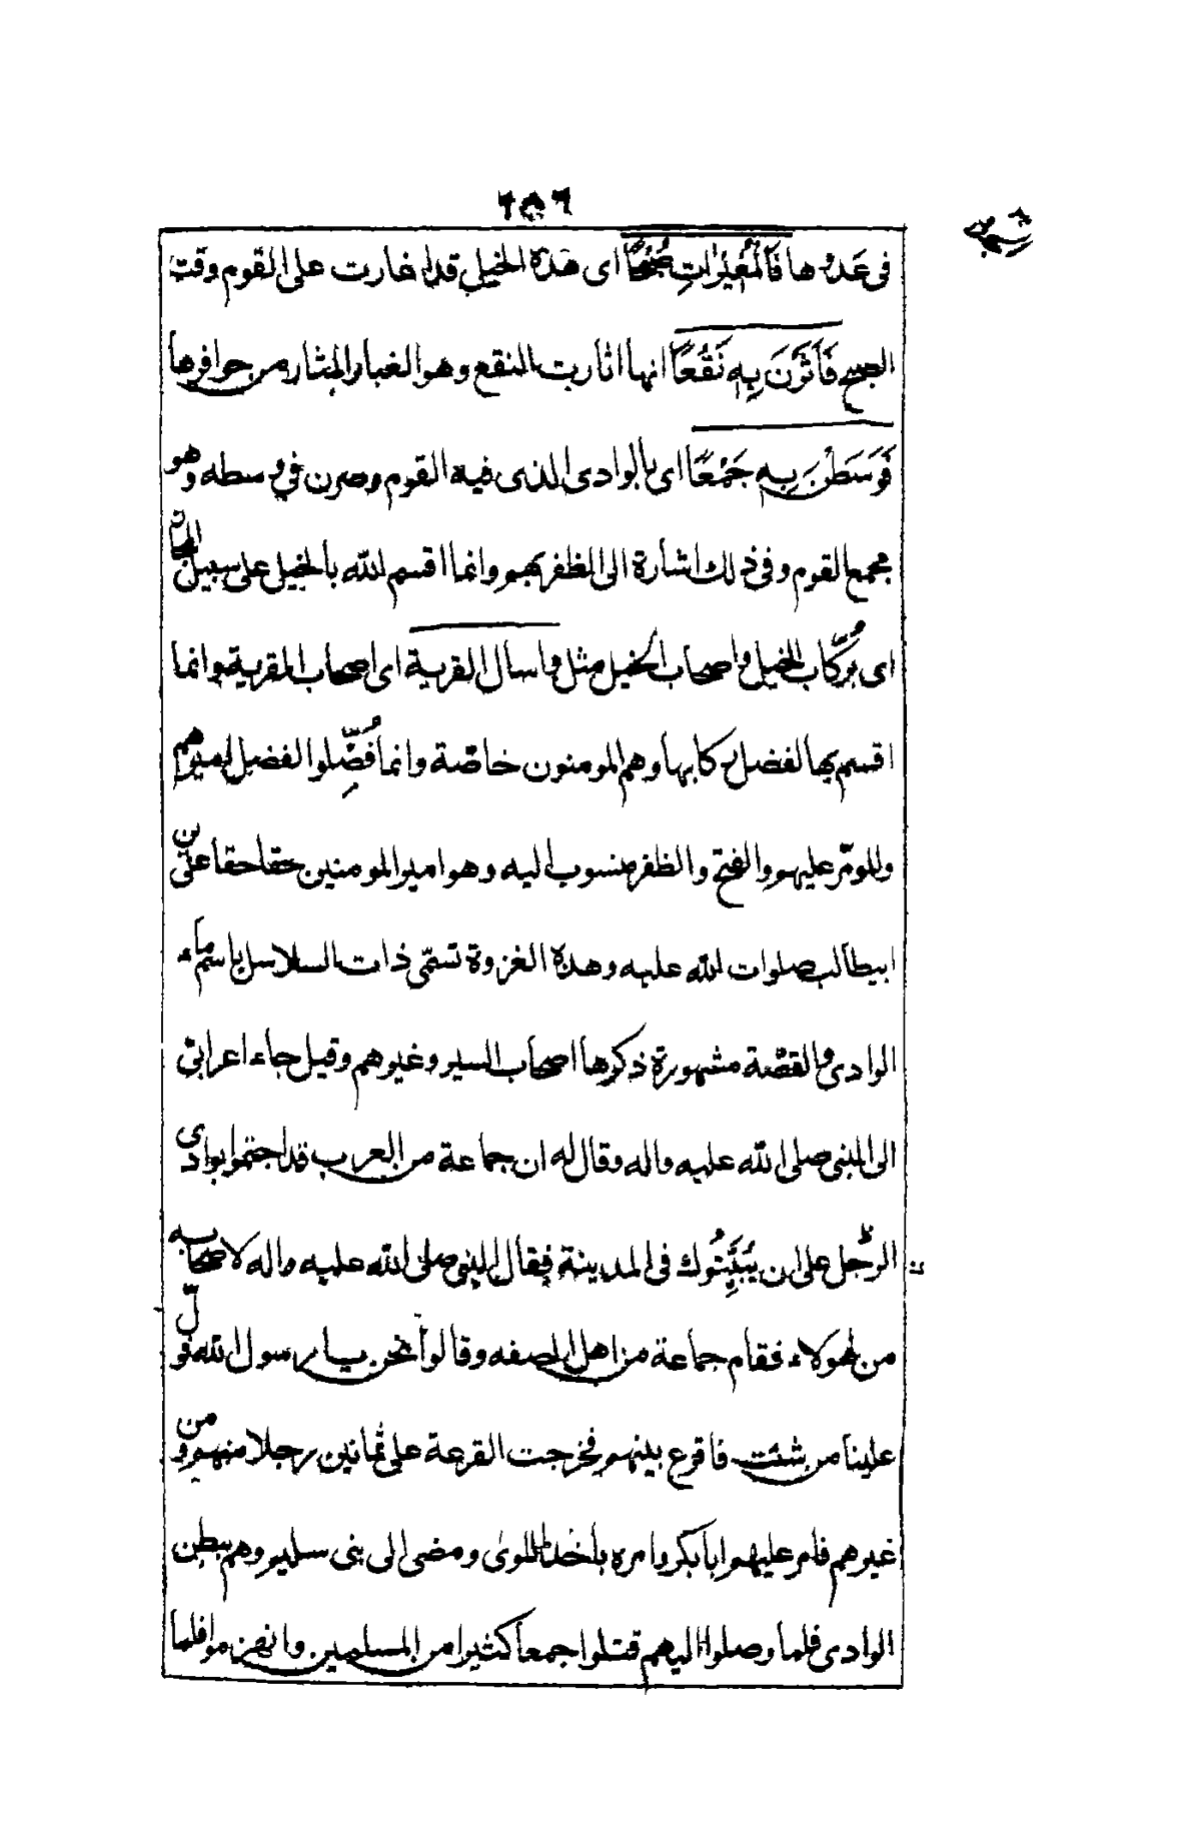 ٢٥٦
فى عَدْوها فَالْمُغِيْرَاتِ صُبْحًا اى هذه الخيل قد اغارت على القوم وقت
الصبح فَاَثَرْنَ بِهٖ نَقْعًا انها اثارت النقع وهو الغبار المثار من حوافرها
فَوَسَطْنَ بِهٖ جَمْعًا اى بالوادى الذى فيه القوم وصرن فى وسطه وهو
مجمع القوم وفى ذلك اشارة الى الظفر بهم وانما اقسم الله بالخيل على سبيل المجاز
اى برُكّاب الخيل واصحاب الخيل مثل واسال القرية اى اصحاب القرية وانما
اقسم بها لفضل ركابها وهم المومنون خاصّة وانما فُضِّلوا لفضل اميرهم
وللومّر عليهم والفتح والظفر منسوب اليه وهو امير المومنين حقا حقا على بن
ابيطالب صلوات الله عليه وهذه الغزوة تسمّى ذات السلاسل باسم ماء
الوادى والقصّة مشهورة ذكرها اصحاب السير وغيرهم وقيل جاء اعرابىّ
الى النبى صلى الله عليه واله وقال له ان جماعة من العرب قد اجتمعوا بوادى
الرّمل على ان يُبَيِّتُوك فى المدينة فقال النبى صلى الله عليه واله لاصحابه
من لهولاء فقام جماعة من اهل الصفه وقالوا نحن يا رسول الله فولّ
علينا من شئت فاقرع بينهم فخرجت القرعة على ثمانين رجلا منهم ومن
غيرهم فامر عليهم ابابكر وامره باخذ اللوى ومضى الى بنى سليم وهم ببطن
الوادى فلما وصلوا اليهم قتلوا جمعا كثيرا من المسلمين وانهزموا فلما